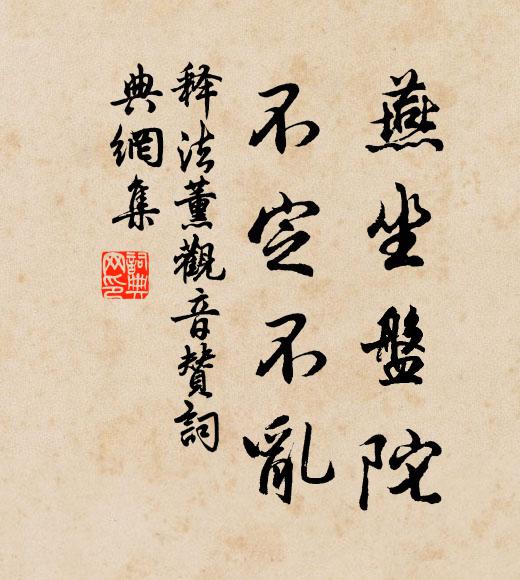 燕坐盤陀
不定不亂
释法薰觀音贊詞
典網集
詞典
网印